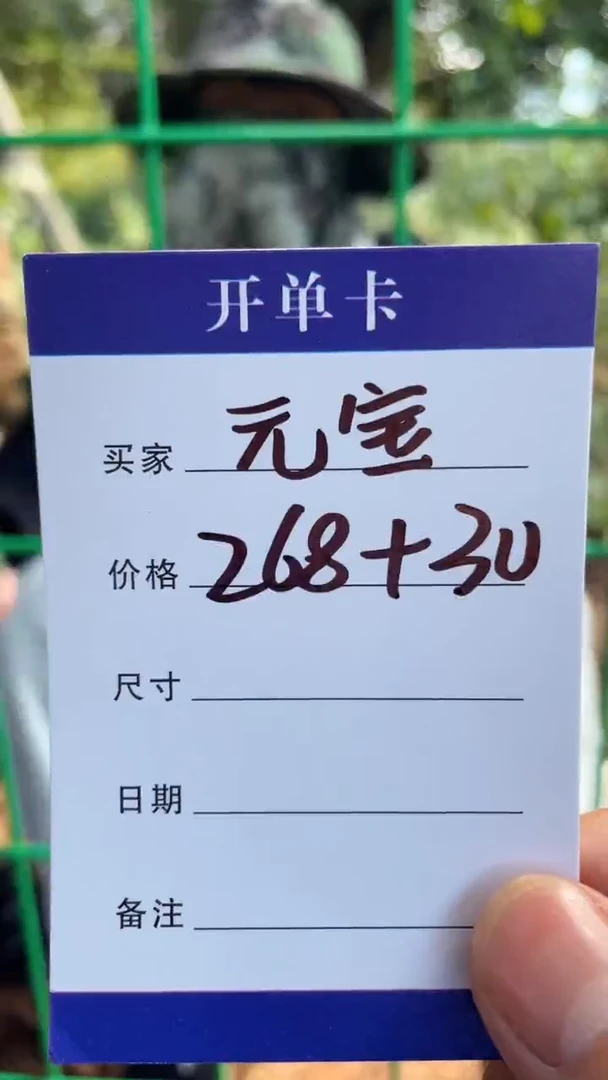 开单卡
买家 元宝
价格 268+30
尺寸
日期
备注